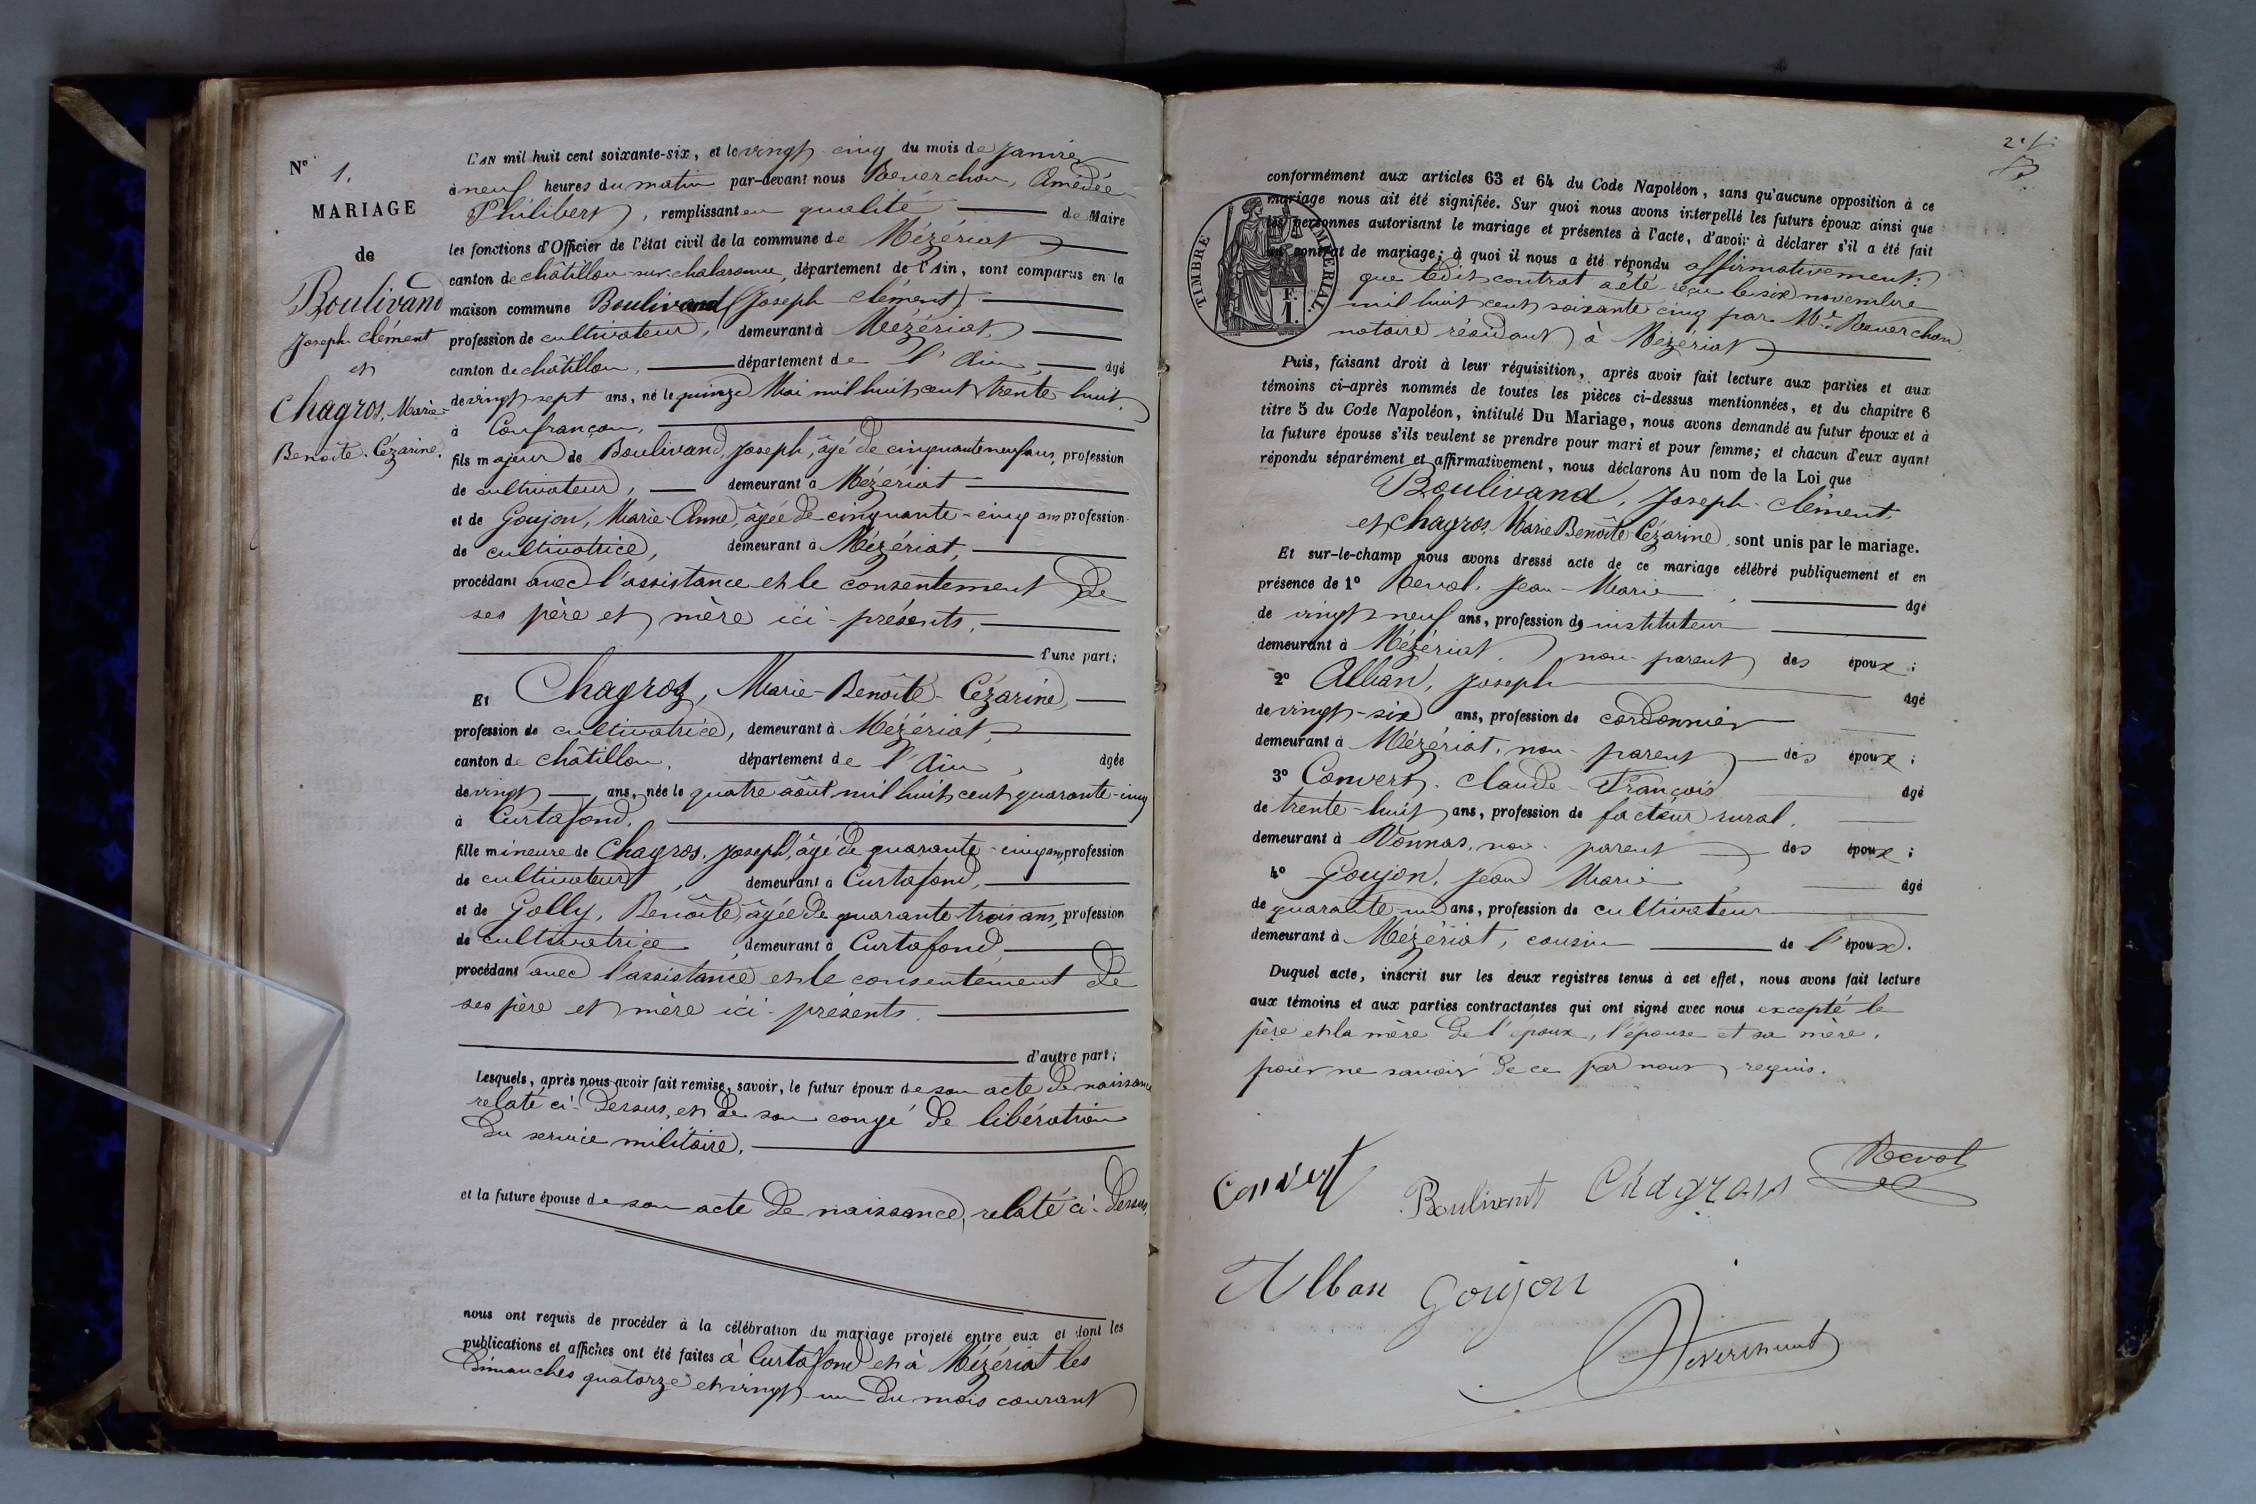 N° 1.
MARIAGE
de
Boulivand
Joseph Clément
et
Chagros, Marie-
Benoîte-Cézarine.
L'AN mil huit cent soixante-six, et le vingt cinq du mois de Janvier
à neuf heures du matin par-devant nous Reverchon, Amédée
Philibert, remplissant en qualité de Maire
les fonctions d'Officier de l'état civil de la commune de Mézériat
canton de châtillon-sur-chalaronne, département de l'Ain, sont comparus en la
maison commune Boulivand (Joseph-Clément)
profession de cultivateur, demeurant à Mézériat,
canton de châtillon, département de l'Ain, âgé
de vingt sept ans, né le quinze Mai mil huit cent trente-huit
à Confrançon,
fils majeur de Boulivand, Joseph, âgé de cinquante neuf ans, profession
de cultivateur, demeurant à Mézériat
et de Goujon, Marie-Anne, âgée de cinquante-cinq ans profession
de cultivatrice, demeurant à Mézériat,
procédant avec l'assistance et le consentement de
ses père et mère ici-présents,
d'une part;
Et Chagros, Marie-Benoîte-Cézarine,
profession de cultivatrice, demeurant à Mézériat,
canton de châtillon, département de l'Ain, âgée
de vingt ans, née le quatre août mil huit cent quarante-cinq
à Curtafond.
fille mineure de Chagros, Joseph, âgé de quarante-cinq ans, profession
de cultivateur, demeurant à Curtafond,
et de Golly, Benoîte, âgée de quarante-trois ans, profession
de cultivatrice, demeurant à Curtafond,
procédant avec l'assistance et le consentement de
ses père et mère ici-présents.
d'autre part;
Lesquels, après nous avoir fait remise, savoir, le futur époux de son acte de naissance
relaté ci-dessus, et de son congé de libération
du service militaire.
et la future épouse de son acte de naissance, relaté ci-dessus,
nous ont requis de procéder à la célébration du mariage projeté entre eux et dont les
publications et affiches ont été faites à Curtafond et à Mézériat les
dimanches quatorze et vingt-un du mois courant
conformément aux articles 63 et 64 du Code Napoléon, sans qu'aucune opposition à ce
mariage nous ait été signifiée. Sur quoi nous avons interpellé les futurs époux ainsi que
les personnes autorisant le mariage et présentes à l'acte, d'avoir à déclarer s'il a été fait
un contrat de mariage; à quoi il nous a été répondu affirmativement:
que ledit contrat a été reçu le six novembre
mil huit cent soixante cinq par Me Reverchon,
notaire résidant à Mézériat
TIMBRE IMPÉRIAL.
F.
1.
Puis, faisant droit à leur réquisition, après avoir fait lecture aux parties et aux
témoins ci-après nommés de toutes les pièces ci-dessus mentionnées, et du chapitre 6
titre 5 du Code Napoléon, intitulé Du Mariage, nous avons demandé au futur époux et à
la future épouse s'ils veulent se prendre pour mari et pour femme; et chacun d'eux ayant
répondu séparément et affirmativement, nous déclarons Au nom de la Loi que
Boulivand, Joseph-Clément,
et Chagros, Marie Benoîte Cézarine, sont unis par le mariage.
Et sur-le-champ nous avons dressé acte de ce mariage célébré publiquement et en
présence de 1° Revol, Jean-Marie, âgé
de vingt neuf ans, profession de instituteur
demeurant à Mézériat, non-parent des époux;
2° Alban, Joseph âgé
de vingt-six ans, profession de cordonnier
demeurant à Mézériat, non-parent des époux;
3° Convert, Claude-François âgé
de trente-huit ans, profession de facteur rural.
demeurant à Vonnas, non-parent des époux;
4° Goujon, Jean Marie âgé
de quarante-un ans, profession de cultivateur
demeurant à Mézériat, cousin de l'époux.
Duquel acte, inscrit sur les deux registres tenus à cet effet, nous avons fait lecture
aux témoins et aux parties contractantes qui ont signé avec nous excepté le
père et la mère de l'époux, l'épouse et sa mère,
pour ne savoir de ce par nous requis.
Convert Boulivant Chagros Revol
Alban Goujon
Reverchon